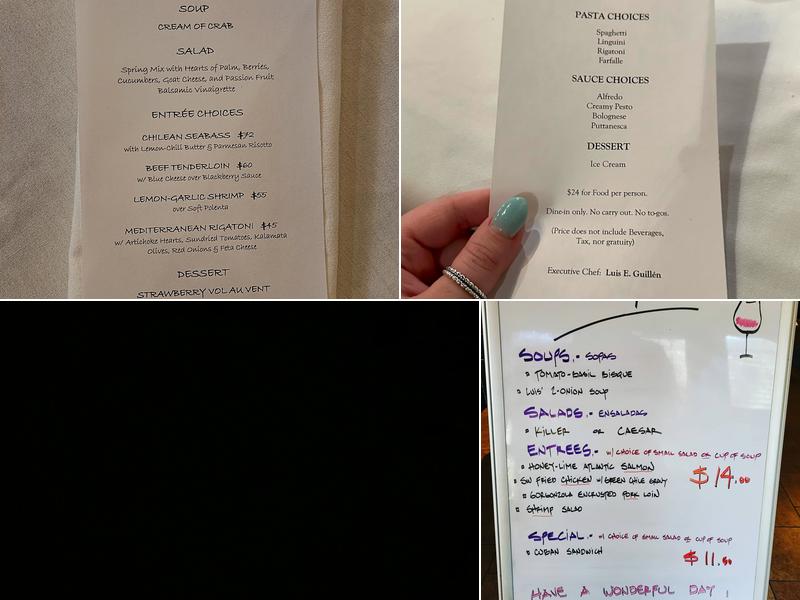 SOUP
CREAM OF CRAB
SALAD
Spring Mix with Hearts of Palm, Berries,
Cucumbers, Goat Cheese, and Passion Fruit
Balsamic Vinaigrette
ENTRÉE CHOICES
CHILEAN SEABASS $72
with Lemon-Chili Butter & Parmesan Risotto
BEEF TENDERLOIN $60
w/ Blue Cheese over Blackberry Sauce
LEMON-GARLIC SHRIMP $55
over Soft Polenta
MEDITERRANEAN RIGATONI $45
w/ Artichoke Hearts, Sundried Tomatoes, Kalamata
Olives, Red Onions & Feta Cheese
DESSERT
STRAWBERRY VOL AU VENT
PASTA CHOICES
Spaghetti
Linguini
Rigatoni
Farfalle
SAUCE CHOICES
Alfredo
Creamy Pesto
Bolognese
Puttanesca
DESSERT
Ice Cream
$24 for Food per person.
Dine-in only. No carry out. No to-gos.
(Price does not include Beverages,
Tax, nor gratuity)
Executive Chef: Luis E. Guillén
SOUPS.- SOPAS
TOMATO-BASIL BISQUE
LUIS' 2-ONION SOUP
SALADS.- ENSALADAS
KILLER OR CAESAR
ENTREES.- W/ CHOICE OF SMALL SALAD OR CUP OF SOUP
HONEY-LIME ATLANTIC SALMON
SW FRIED CHICKEN W/GREEN CHILE GRAVY
$14.00
GORGONZOLA ENCRUSTED PORK LOIN
SHRIMP SALAD
SPECIAL.- W/ CHOICE OF SMALL SALAD OR CUP OF SOUP
CUBAN SANDWICH
$11.50
HAVE A WONDERFUL DAY!